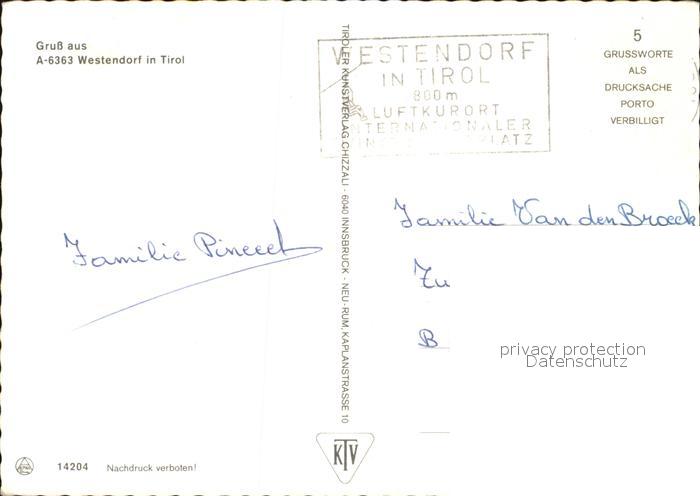 Gruß aus
A-6363 Westendorf in Tirol
Familie
14204 Nachdruck verboten!
TIROLER KUNSTVERLAG CHIZZALI · 6040 INNSBRUCK - NEU-RUM, KAPLANSTRASSE 10
KTV
WESTENDORF
IN TIROL
800m
LUFTKURORT
INTERNATIONALER
5
GRUSSWORTE
ALS
DRUCKSACHE
PORTO
VERBILLIGT
Familie Van den Broeck
Zu
B
privacy protection
Datenschutz